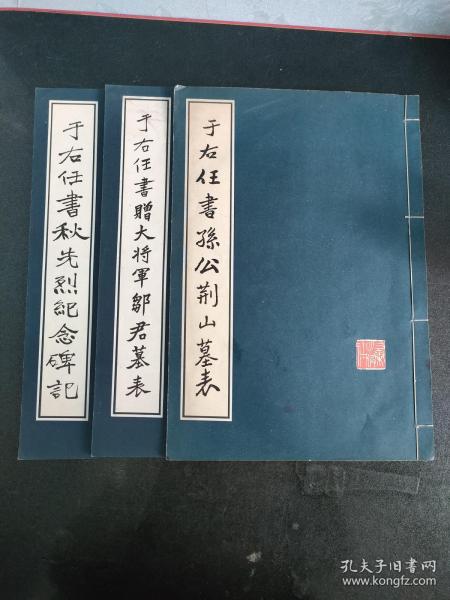 于右任書孫公荆山墓表
于右任書贈大将軍鄒君墓表
于右任書秋先烈紀念碑記
孔夫子旧书网
www.kongfz.com